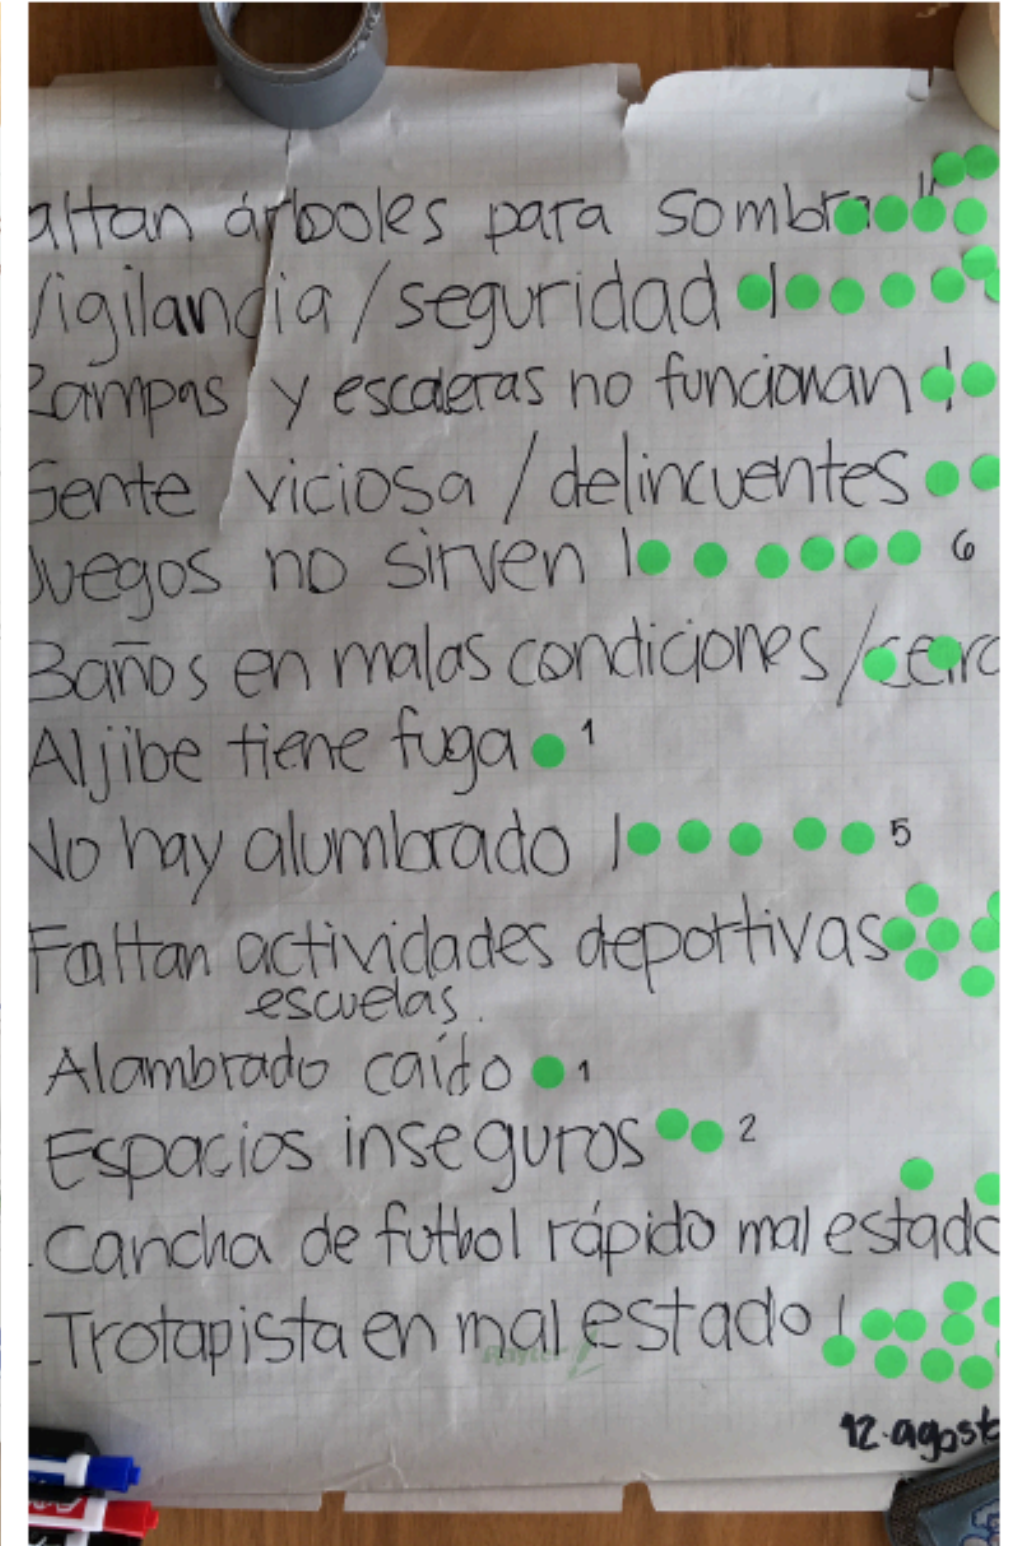 altan árboles para sombra "
Vigilancia / seguridad |
Rampas y escaleras no funcionan |
Gente viciosa / delincuentes
Juegos no sirven | 6
Baños en malas condiciones / cerc
Aljibe tiene fuga 1
No hay alumbrado | 5
Faltan actividades deportivas
escuelas.
Alambrado caído 1
Espacios inseguros 2
Cancha de futbol rápido mal estado
Trotapista en mal estado |
12.agost